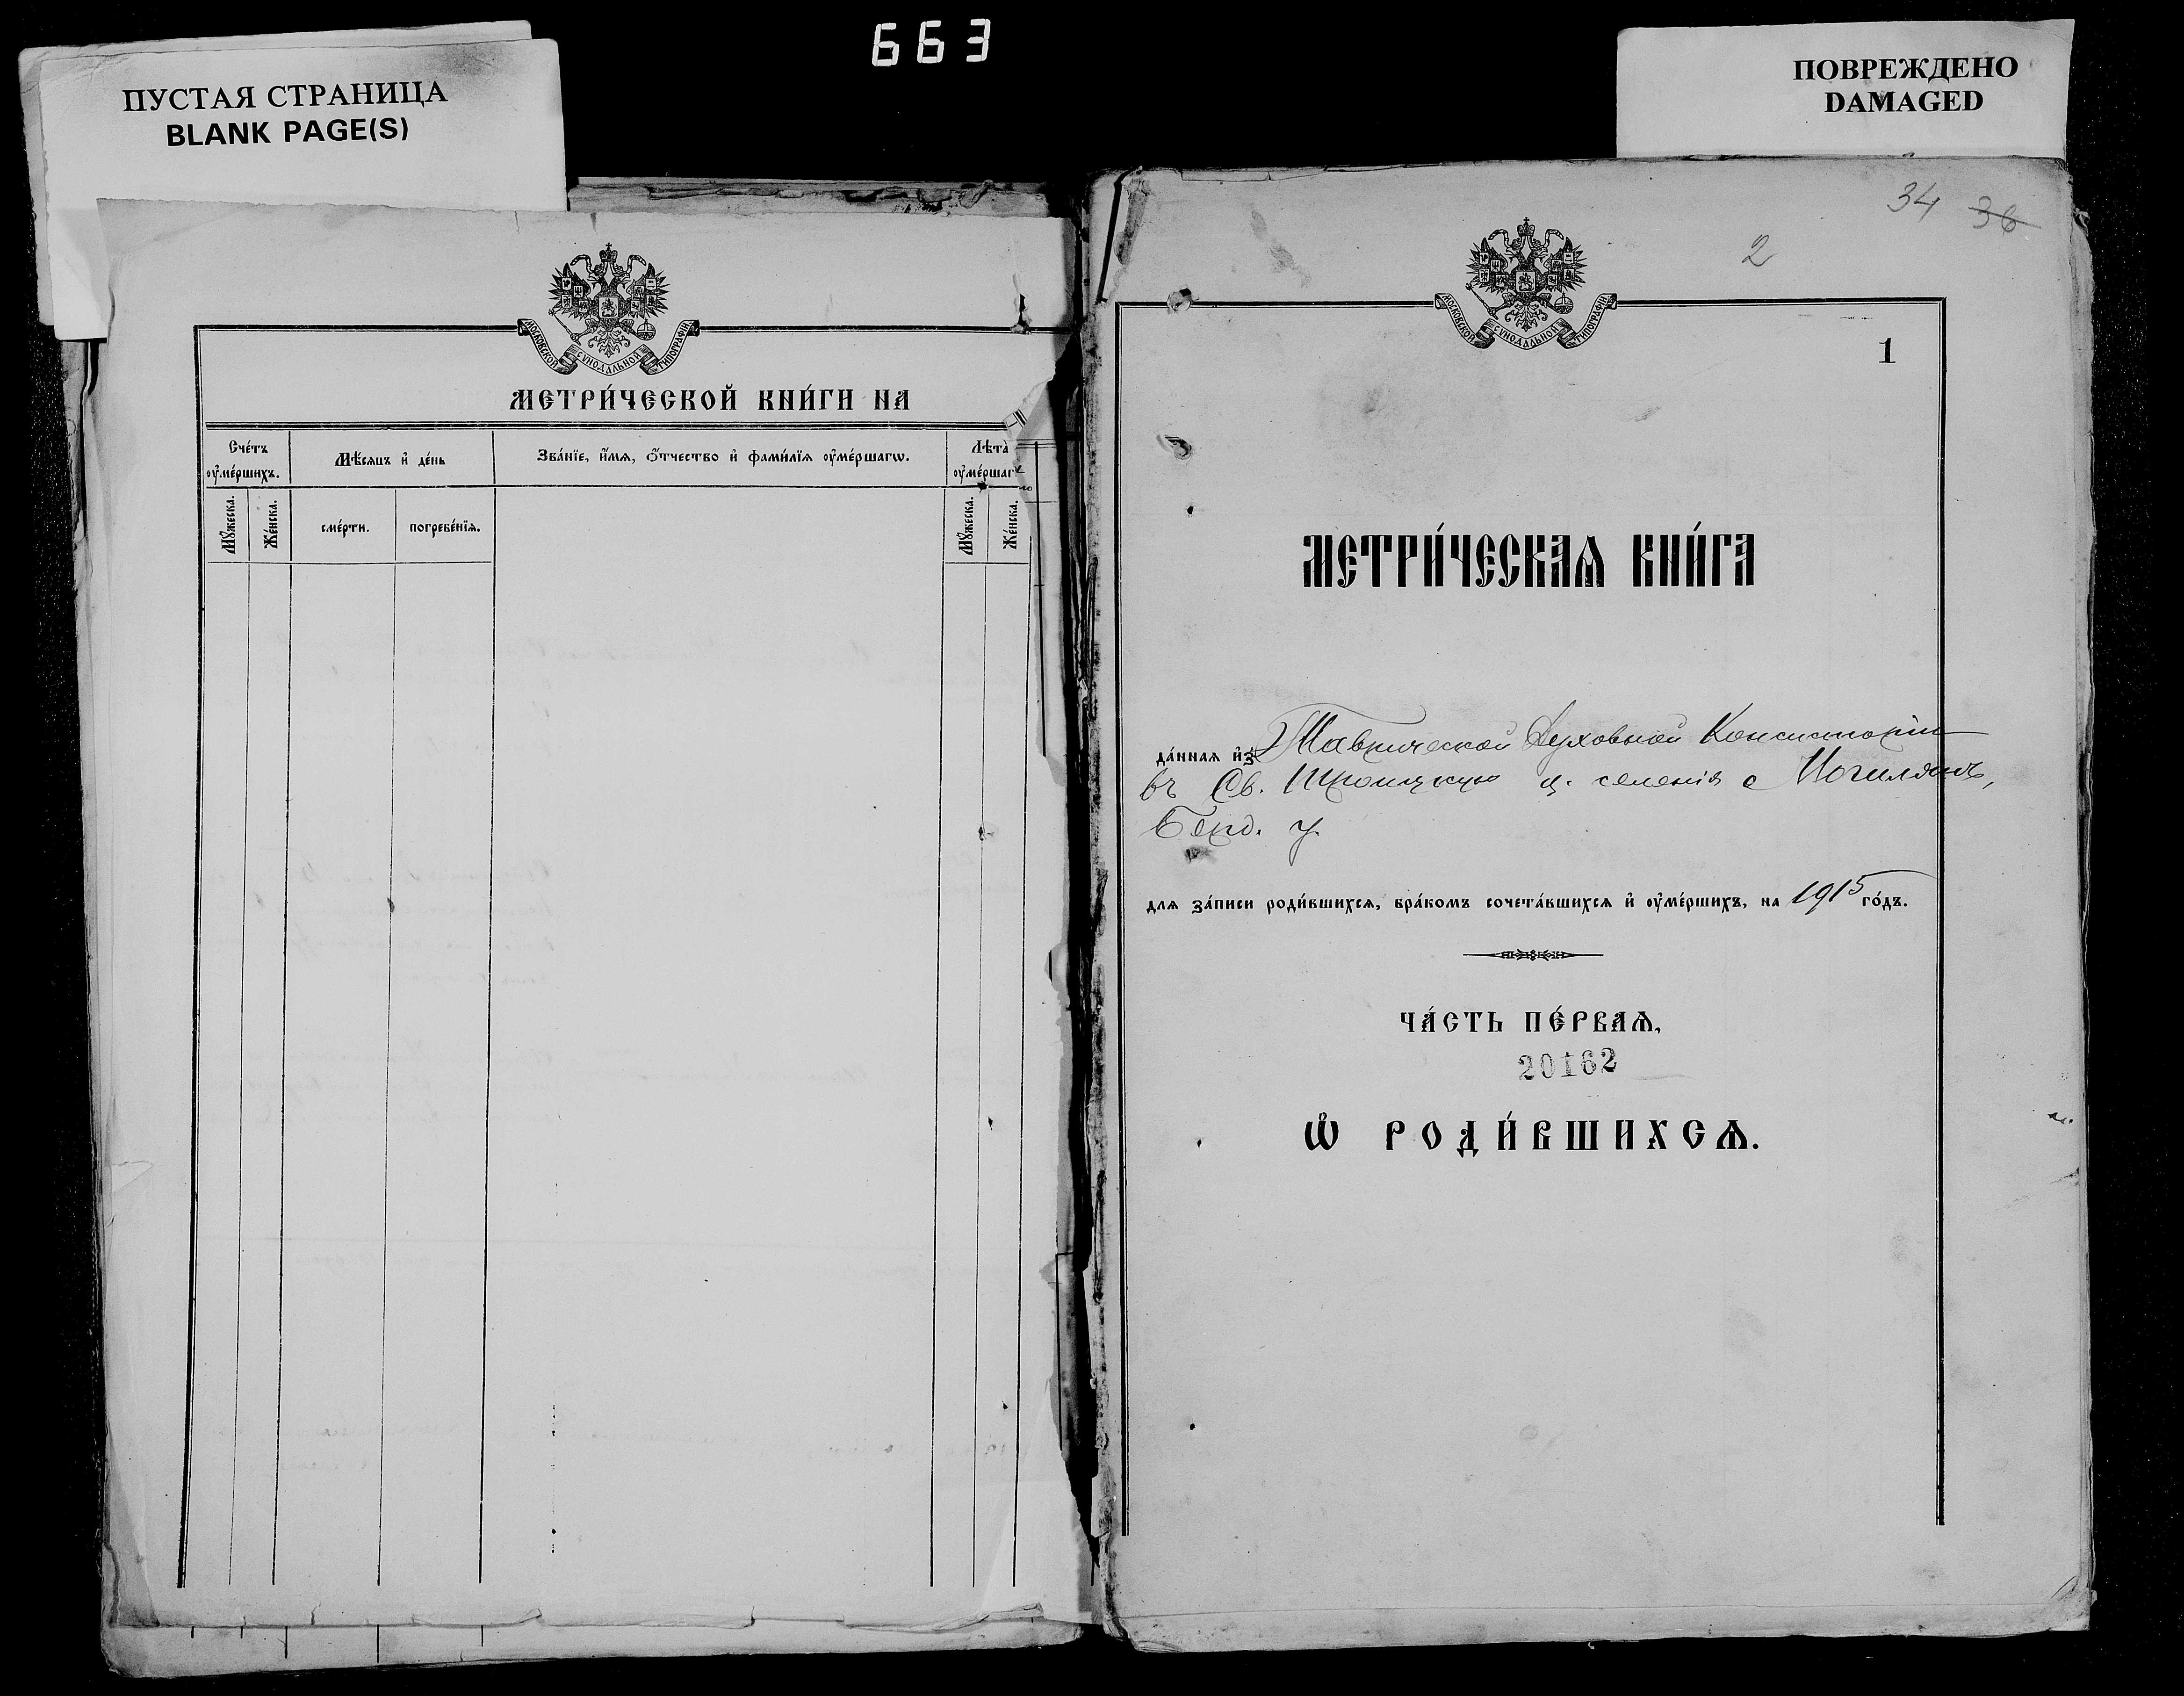 663
ПУСТАЯ СТРАНИЦА
BLANK PAGE(S)
МОСКОВСКОЙ СѴНОДАЛЬНОЙ ТИПОГРАФІИ
МЕТРИ́ЧЕСКОЙ КНИ́ГИ НА
Сче́тъ ᲂу҆ме́ршихъ.
Мѣ́сяцъ и҆ де́нь
Зва́нїе, и҆́мя, ѻ҆́тчество и҆ фами́лїя ᲂу҆ме́ршагѡ.
Лѣта̀ ᲂу҆ме́ршаг
Мꙋжеска.
Же́нска.
сме́рти.
погребе́нїя.
Мꙋжеска.
Же́нска.
ПОВРЕЖДЕНО
DAMAGED
34 36
2
МОСКОВСКОЙ СѴНОДАЛЬНОЙ ТИПОГРАФІИ
1
МЕТРИ́ЧЕСКАѦ КНИ́ГА
да́нная и҆з Таврической Духовной Консисторіи
въ Св. Троицкую ц. селенія с Могилянъ,
Берд. у
для за́писи роди́вшихся, бра́комъ сочета́вшихся и҆ ᲂу҆ме́ршихъ, на 1915 го́дъ.
ЧА́СТЬ ПЕ́РВАѦ,
20162
Ѡ҆ РОДИ́ВШИХСѦ.